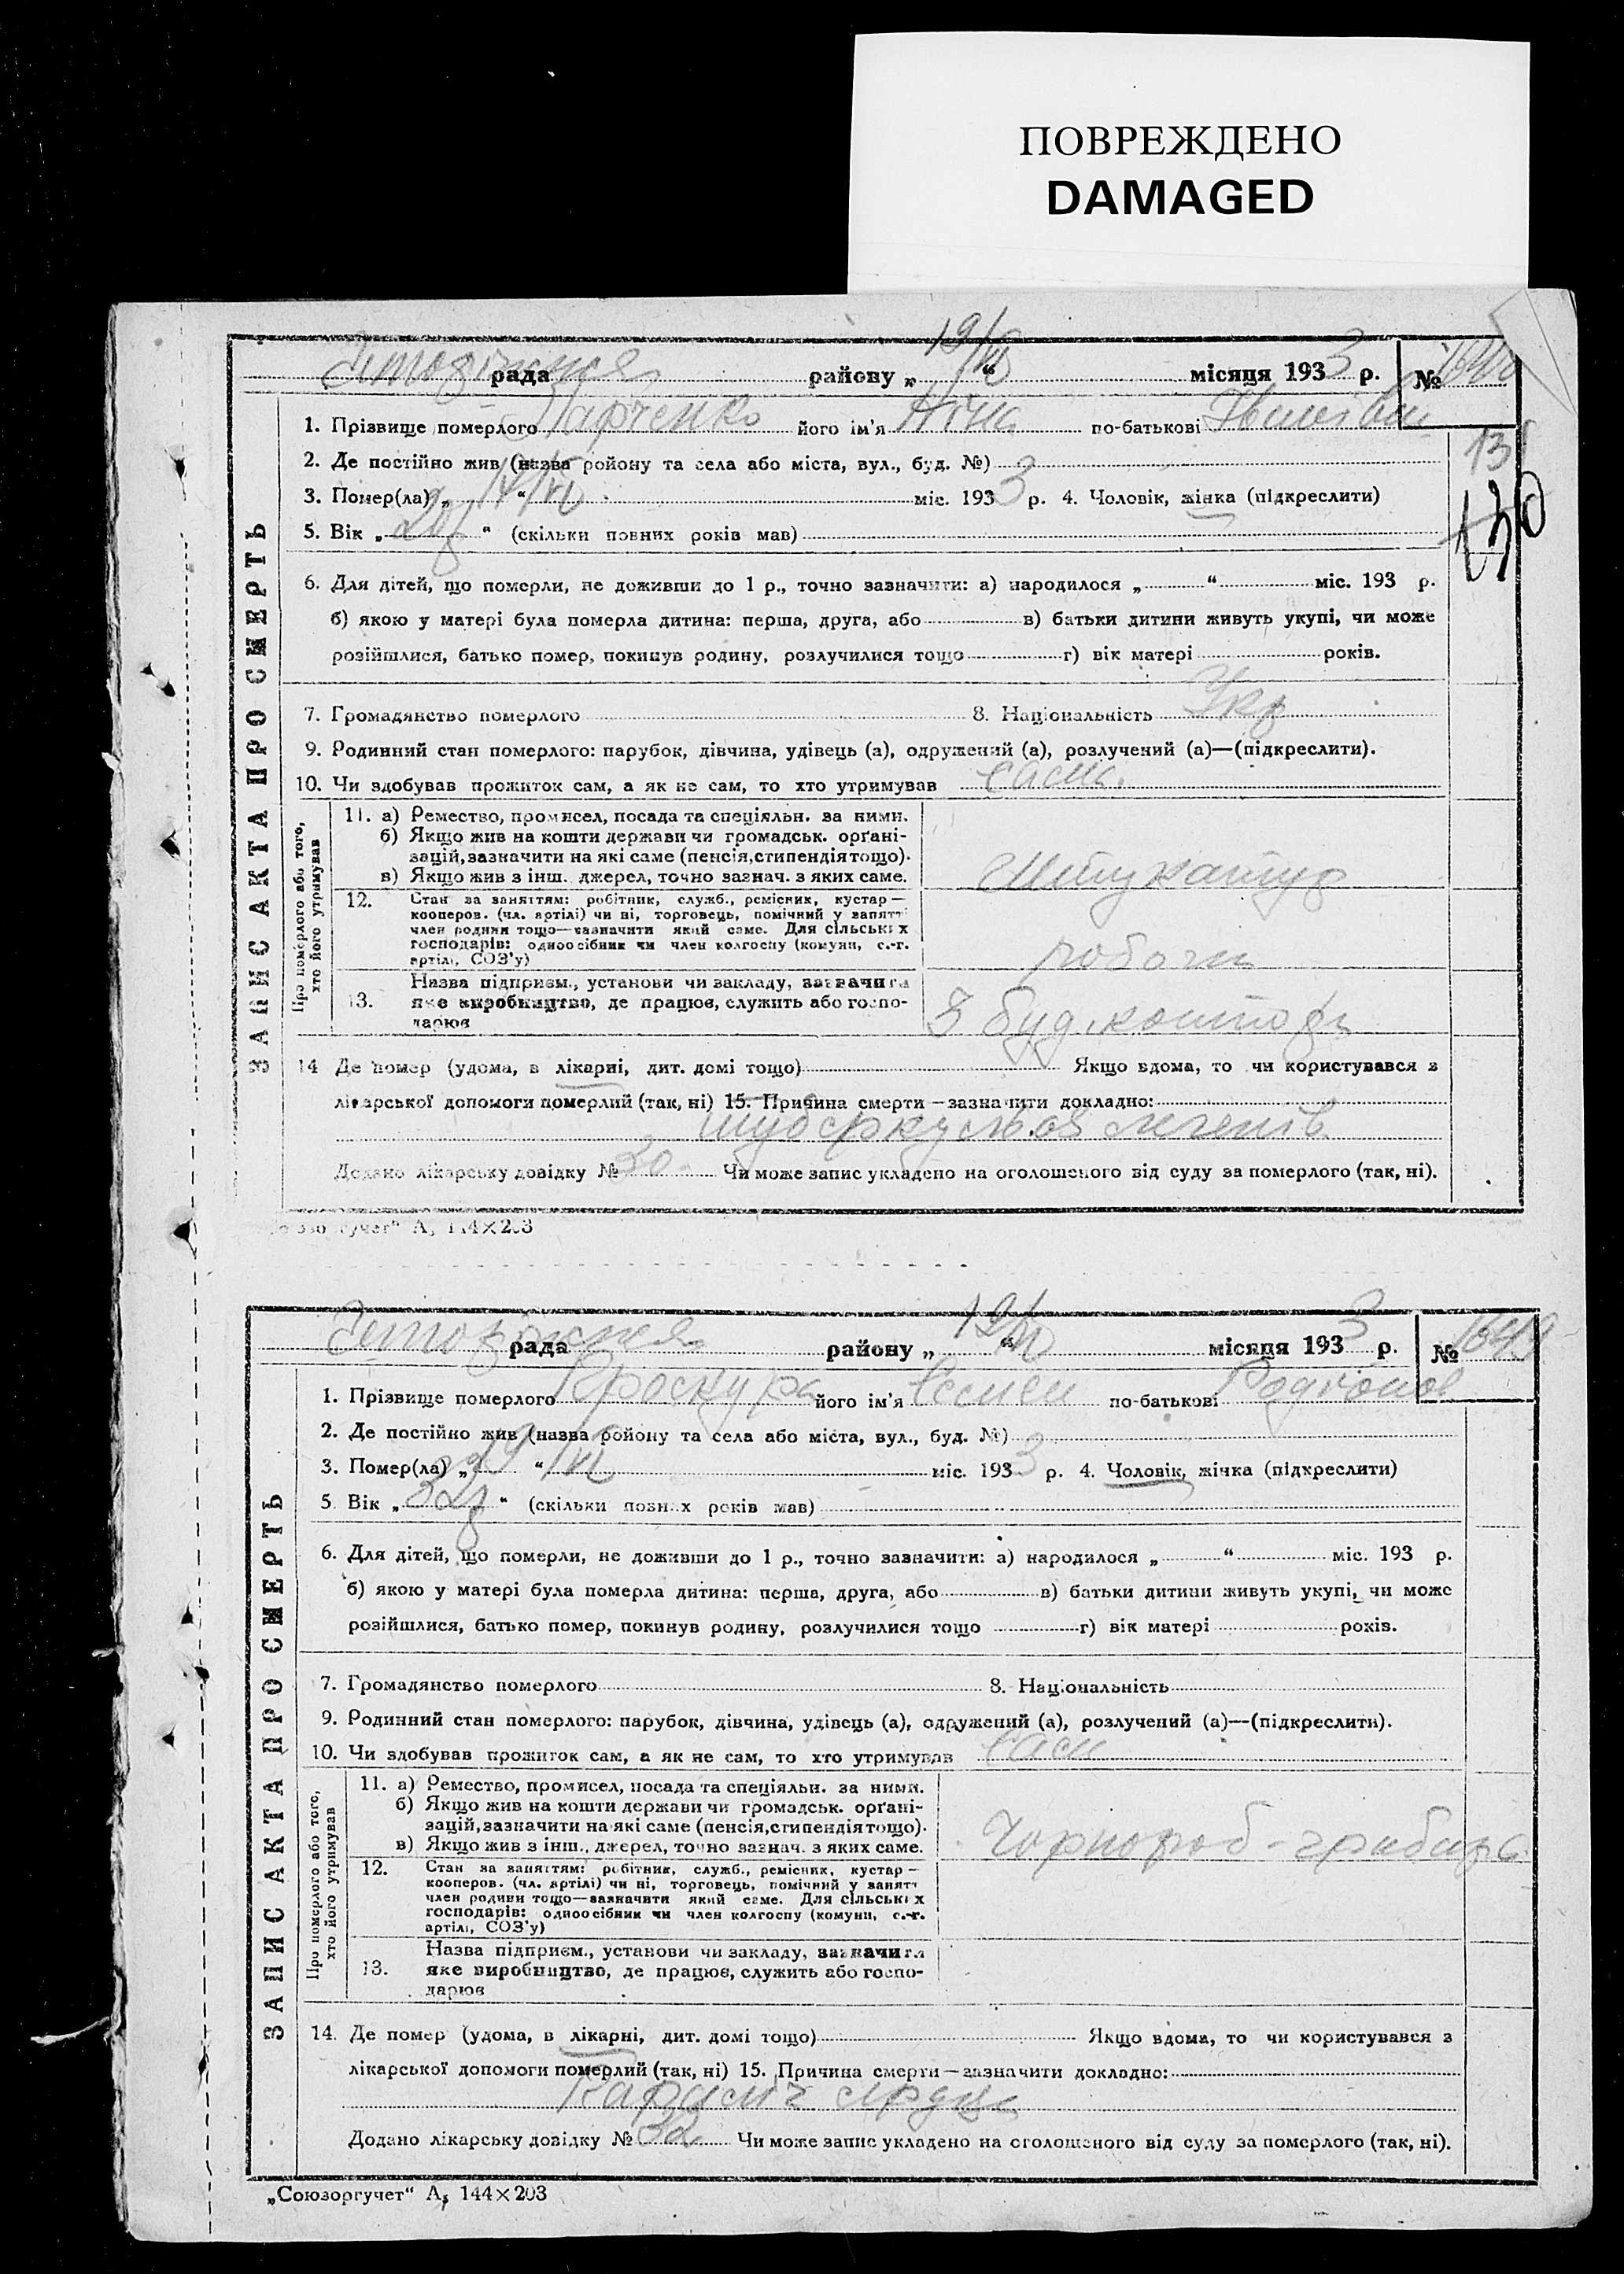 ПОВРЕЖДЕНО
DAMAGED
рада району „ 19/VI “ місяця 1933 р. №
1. Прізвище померлого його ім'я Ніна по-батькові
2. Де постійно жив (назва ройону та села або міста, вул., буд. №)
3. Помер(ла) „ “ міс. 1933 р. 4. Чоловік, жінка (підкреслити)
5. Вік „ “ (скільки повних років мав)
6. Для дітей, що померли, не доживши до 1 р., точно зазначити: а) народилося „ “ міс. 193 р.
б) якою у матері була померла дитина: перша, друга, або в) батьки дитини живуть укупі, чи може
розійшлися, батько помер, покинув родину, розлучилися тощо г) вік матері років.
7. Громадянство померлого 8. Національність Укр
9. Родинний стан померлого: парубок, дівчина, удівець (а), одружений (а), розлучений (а)—(підкреслити).
10. Чи здобував прожиток сам, а як не сам, то хто утримував сама
ЗАПИС АКТА ПРО СМЕРТЬ
Про померлого або того,
хто його утримував
11. а) Ремество, промисел, посада та спеціяльн. за ними.
б) Якщо жив на кошти держави чи громадськ. орґані-
зацій, зазначити на які саме (пенсія, стипендія тощо).
в) Якщо жив з інш. джерел, точно зазнач. з яких саме.
Штукатур
12. Стан за заняттям: робітник, служб., ремісник, кустар—
кооперов. (чл. артілі) чи ні, торговець, помічний у занятт
член родини тощо—зазначити який саме. Для сільськіх
господарів: одноосібник чи член колгоспу (комуни, с.-г.
артілі, СОЗ'у)
13. Назва підприєм., установи чи закладу, зазначити
яке виробництво, де працює, служить або госпо-
дарює
3 буд. контора
14 Де помер (удома, в лікарні, дит. домі тощо) Якщо вдома, то чи користувався з
лікарської допомоги померлий (так, ні) 15. Причина смерти—зазначити докладно:
туберкульоз легенів
Додано лікарську довідку № 30 Чи може запис укладено на оголошеного від суду за померлого (так, ні).
А, 144×203
рада району „ 19/VI “ місяця 1933 р. № 1649
1. Прізвище померлого Проскура його ім'я Семен по-батькові Родіонов
2. Де постійно жив (назва ройону та села або міста, вул., буд. №)
3. Помер(ла) „ “ міс. 1933 р. 4. Чоловік, жінка (підкреслити)
5. Вік „ 32р “ (скільки повних років мав)
6. Для дітей, що померли, не доживши до 1 р., точно зазначити: а) народилося „ “ міс. 193 р.
б) якою у матері була померла дитина: перша, друга, або в) батьки дитини живуть укупі, чи може
розійшлися, батько помер, покинув родину, розлучилися тощо г) вік матері років.
7. Громадянство померлого 8. Національність
9. Родинний стан померлого: парубок, дівчина, удівець (а), одружений (а), розлучений (а)—(підкреслити).
10. Чи здобував прожиток сам, а як не сам, то хто утримував Сам
ЗАПИС АКТА ПРО СМЕРТЬ
Про померлого або того,
хто його утримував
11. а) Ремество, промисел, посада та спеціяльн. за ними.
б) Якщо жив на кошти держави чи громадськ. орґані-
зацій, зазначити на які саме (пенсія, стипендія тощо).
в) Якщо жив з інш., джерел, точно зазнач. з яких саме.
Чорнороб-грабарь
12. Стан за заняттям: робітник, служб., ремісник, кустар—
кооперов. (чл. артілі) чи ні, торговець, помічний у занятт
член родини тощо—зазначити який саме. Для сільськіх
господарів: одноосібник чи член колгоспу (комуни, с.-г.
артілі, СОЗ'у)
13. Назва підприєм., установи чи закладу, зазначити
яке виробництво, де працює, служить або госпо-
дарює
14. Де помер (удома, в лікарні, дит. домі тощо) Якщо вдома, то чи користувався з
лікарської допомоги померлий (так, ні) 15. Причина смерти—зазначити докладно:
Параліч сердця
Додано лікарську довідку № 32 Чи може запис укладено на оголошеного від суду за померлого (так, ні).
„Союзоргучет“ А, 144×203